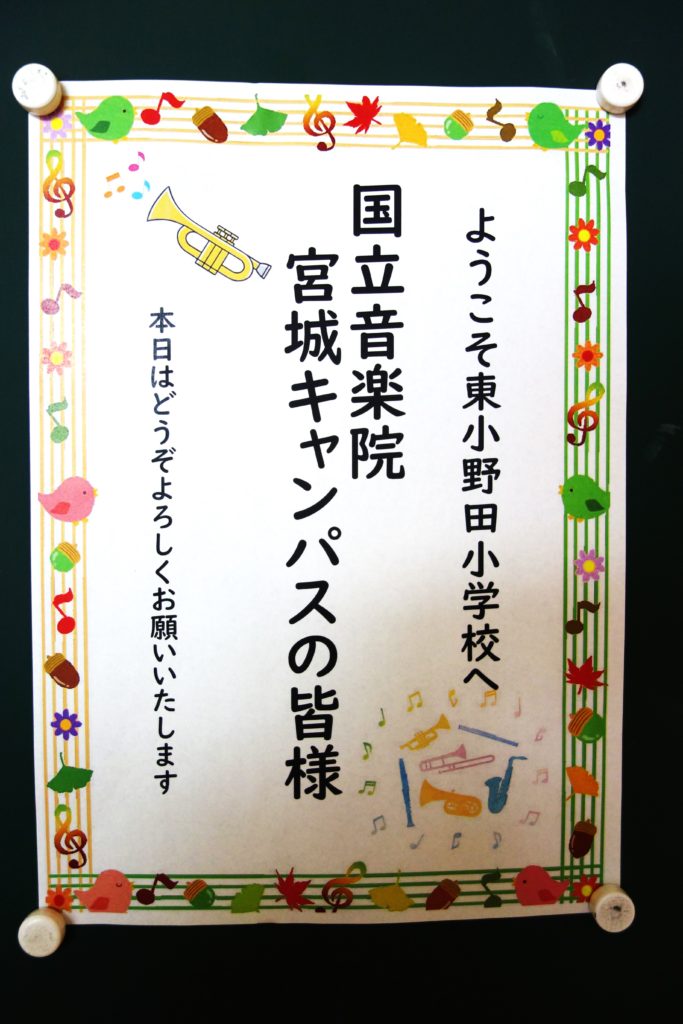 ようこそ東小野田小学校へ
国立音楽院
宮城キャンパスの皆様
本日はどうぞよろしくお願いいたします